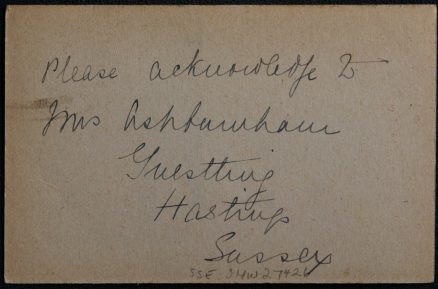 Please acknowledge to
Mrs Ashburnham
Guestling
Hastings
Sussex
SSE